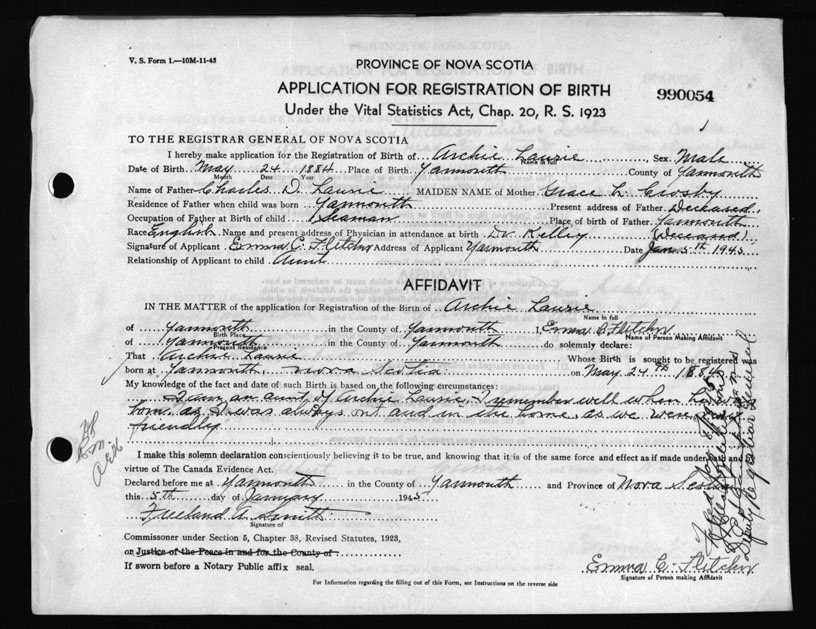 V. S. Form 1.—10M-11-43
PROVINCE OF NOVA SCOTIA
APPLICATION FOR REGISTRATION OF BIRTH
990054
Under the Vital Statistics Act, Chap. 20, R. S. 1923
1
TO THE REGISTRAR GENERAL OF NOVA SCOTIA
I hereby make application for the Registration of Birth of Archie Laurie Sex Male
Name in full
Date of Birth May 24 1884 Place of Birth Yarmouth County of Yarmouth
Month Date Year
Name of Father Charles D. Laurie MAIDEN NAME of Mother Grace L. Crosby
Residence of Father when child was born Yarmouth Present address of Father Deceased
Occupation of Father at Birth of child Seaman Place of birth of Father Yarmouth
Race English Name and present address of Physician in attendance at birth Dr Kelley (deceased)
Signature of Applicant Emma C. Fletcher Address of Applicant Yarmouth Date Jan 5th 1945
Relationship of Applicant to child Aunt
AFFIDAVIT
IN THE MATTER of the application for Registration of the Birth of Archie Laurie
Name in full
of Yarmouth in the County of Yarmouth I, Emma C. Fletcher
Birth Place Name of Person Making Affidavit
of Yarmouth in the County of Yarmouth do solemnly declare:
Present Residence
That Archie Laurie Whose Birth is sought to be registered was
born at Yarmouth, Nova Scotia on May 24th 1884
My knowledge of the fact and date of such Birth is based on the following circumstances:
I am an aunt of Archie Laurie, I remember well when he was
born, as I was always out and in the home, as we were
friendly
I make this solemn declaration conscientiously believing it to be true, and knowing that it is of the same force and effect as if made under oath and
virtue of The Canada Evidence Act.
Declared before me at Yarmouth in the County of Yarmouth and Province of Nova Scotia
this 5th day of January 1945
Freeland A. Smith
Signature of
Commissioner under Section 5, Chapter 38, Revised Statutes, 1923,
or Justice of the Peace in and for the County of
If sworn before a Notary Public affix seal.
Emma C. Fletcher
Signature of Person making Affidavit
For Information regarding the filling out of this Form, see Instructions on the reverse side
Deputy Registrar General